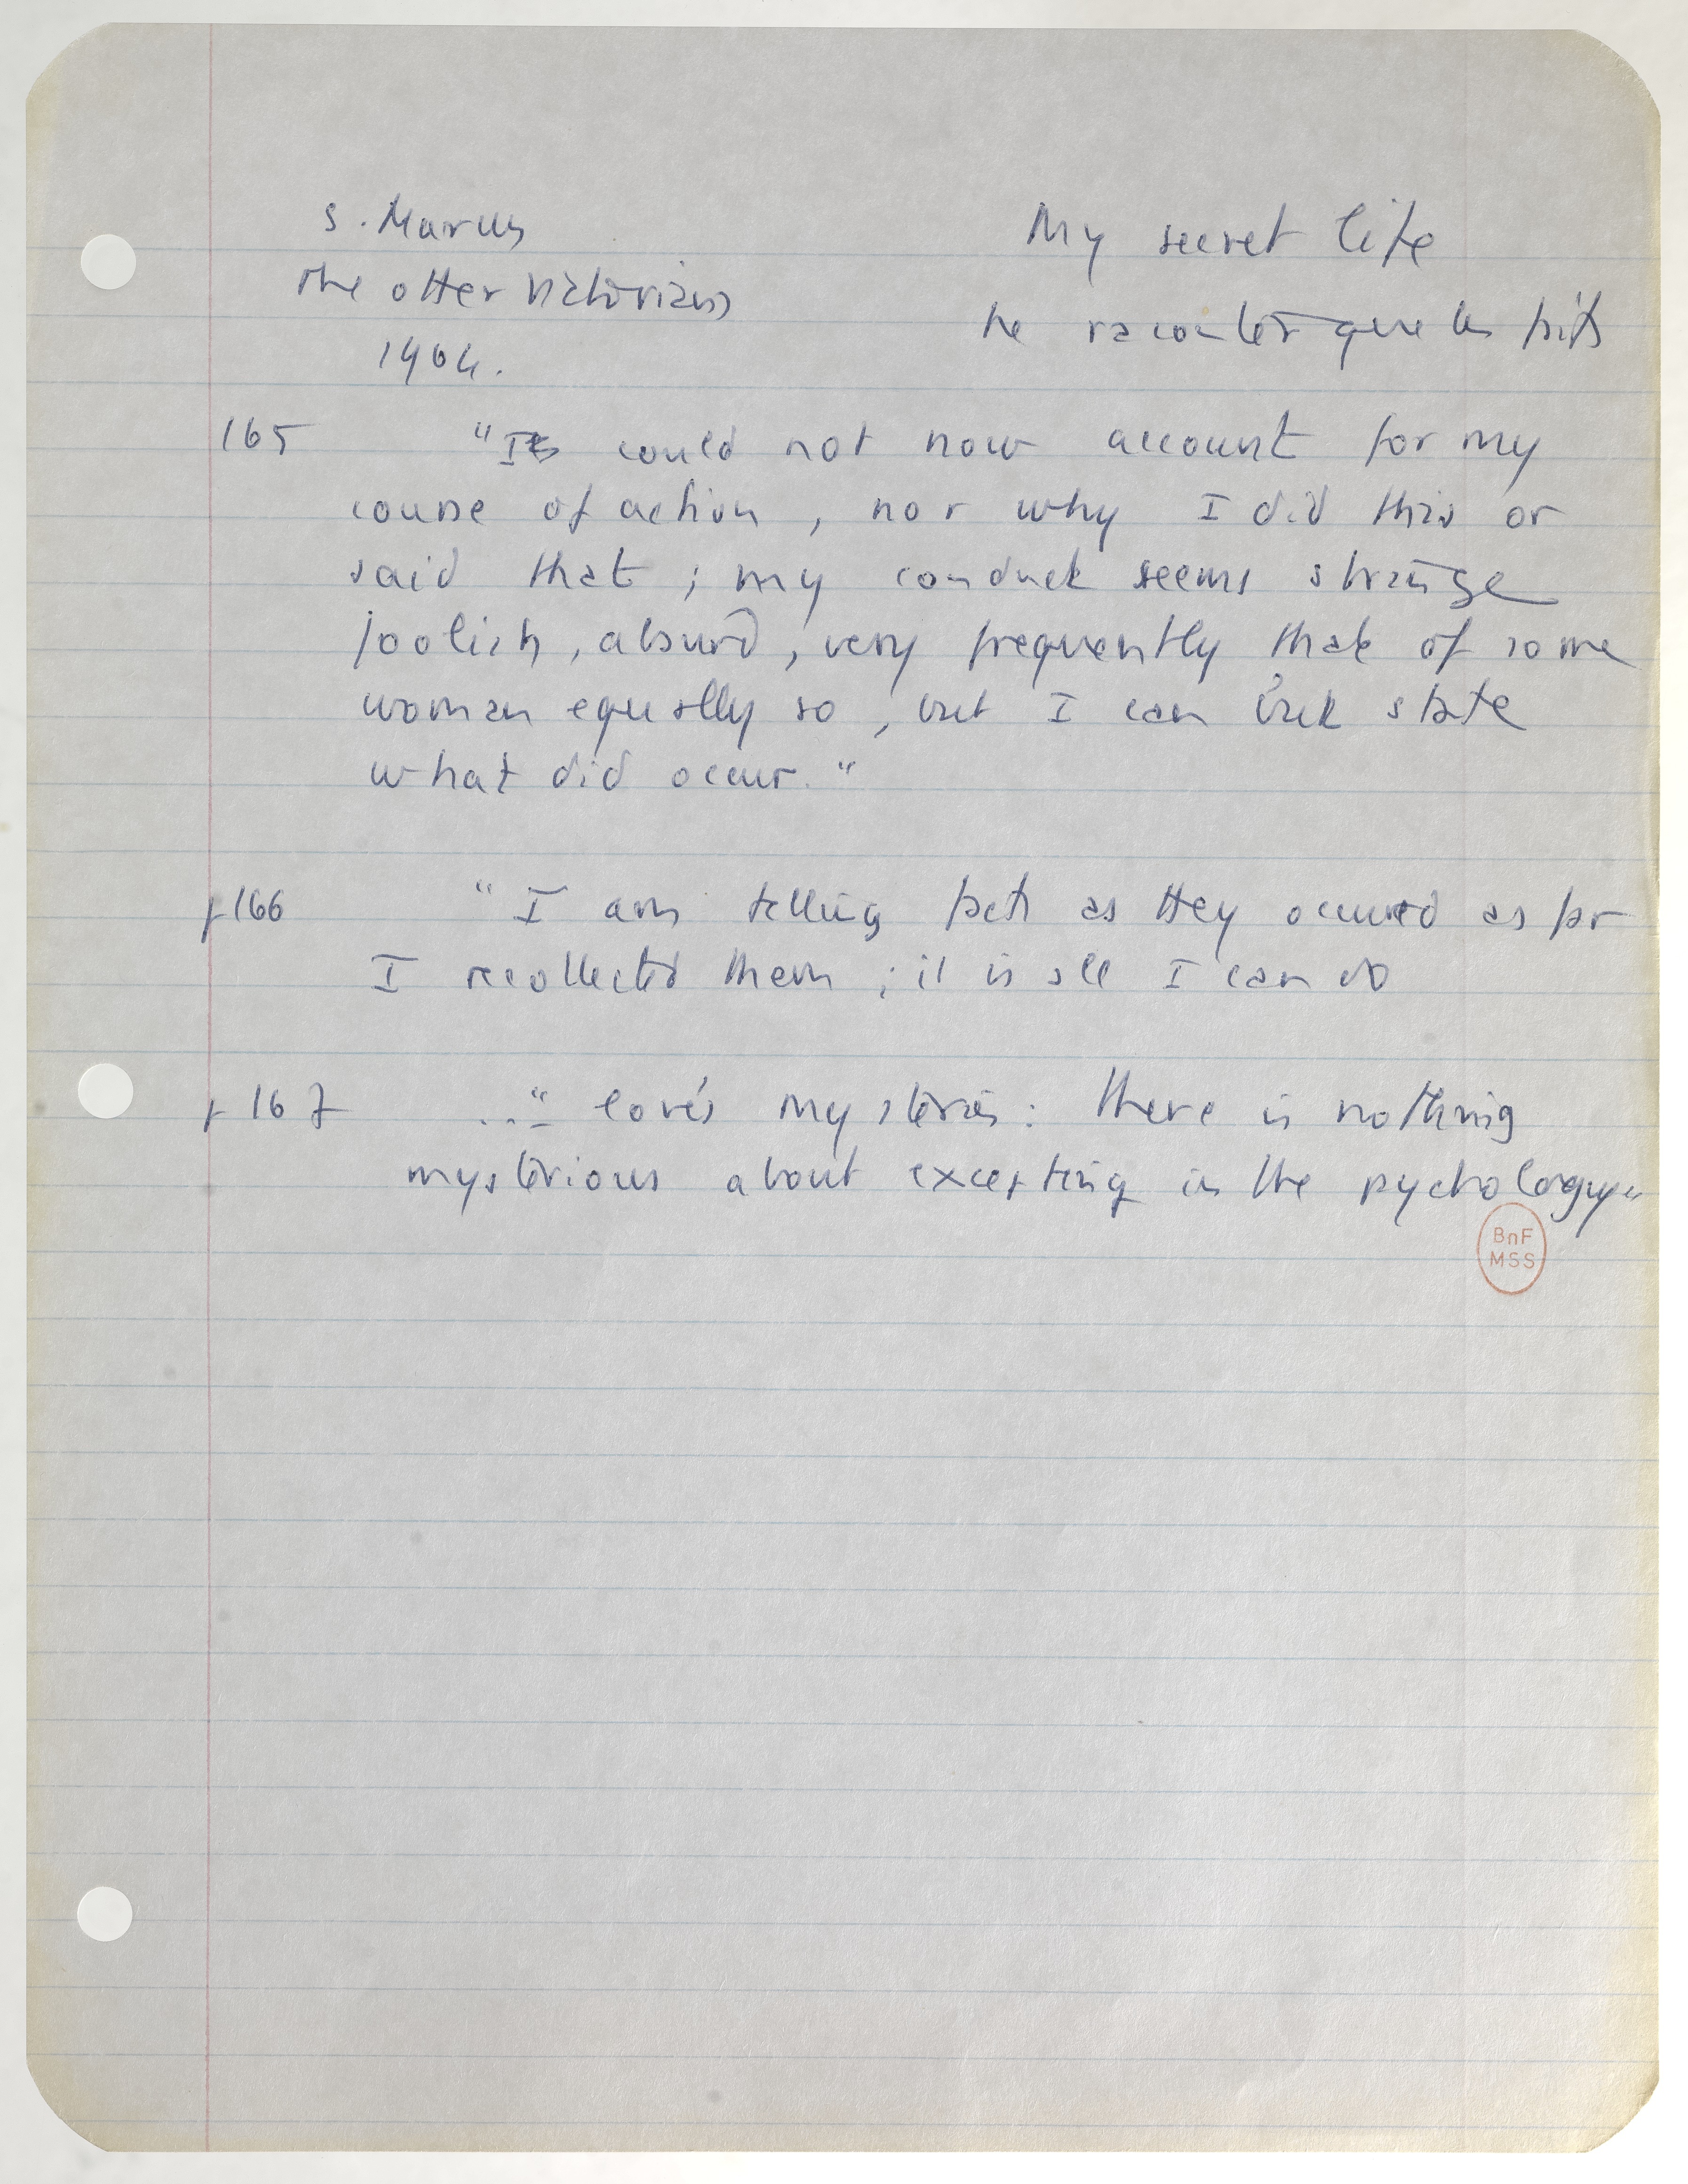 S. Marcus
The other Victorians
1964.
My secret life
Ne raconter que les faits
165 "I could not now account for my
course of action, nor why I did this or
said that ; my conduct seems strange
foolish, absurd, very frequently that of some
woman equally so, but I can but state
what did occur."
p 166 "I am telling facts as they occured as far
I recollected them ; it is all I can do
p 167 ..." love's mysteries : there is nothing
mysterious about excepting in the psychology"
BnF
MSS